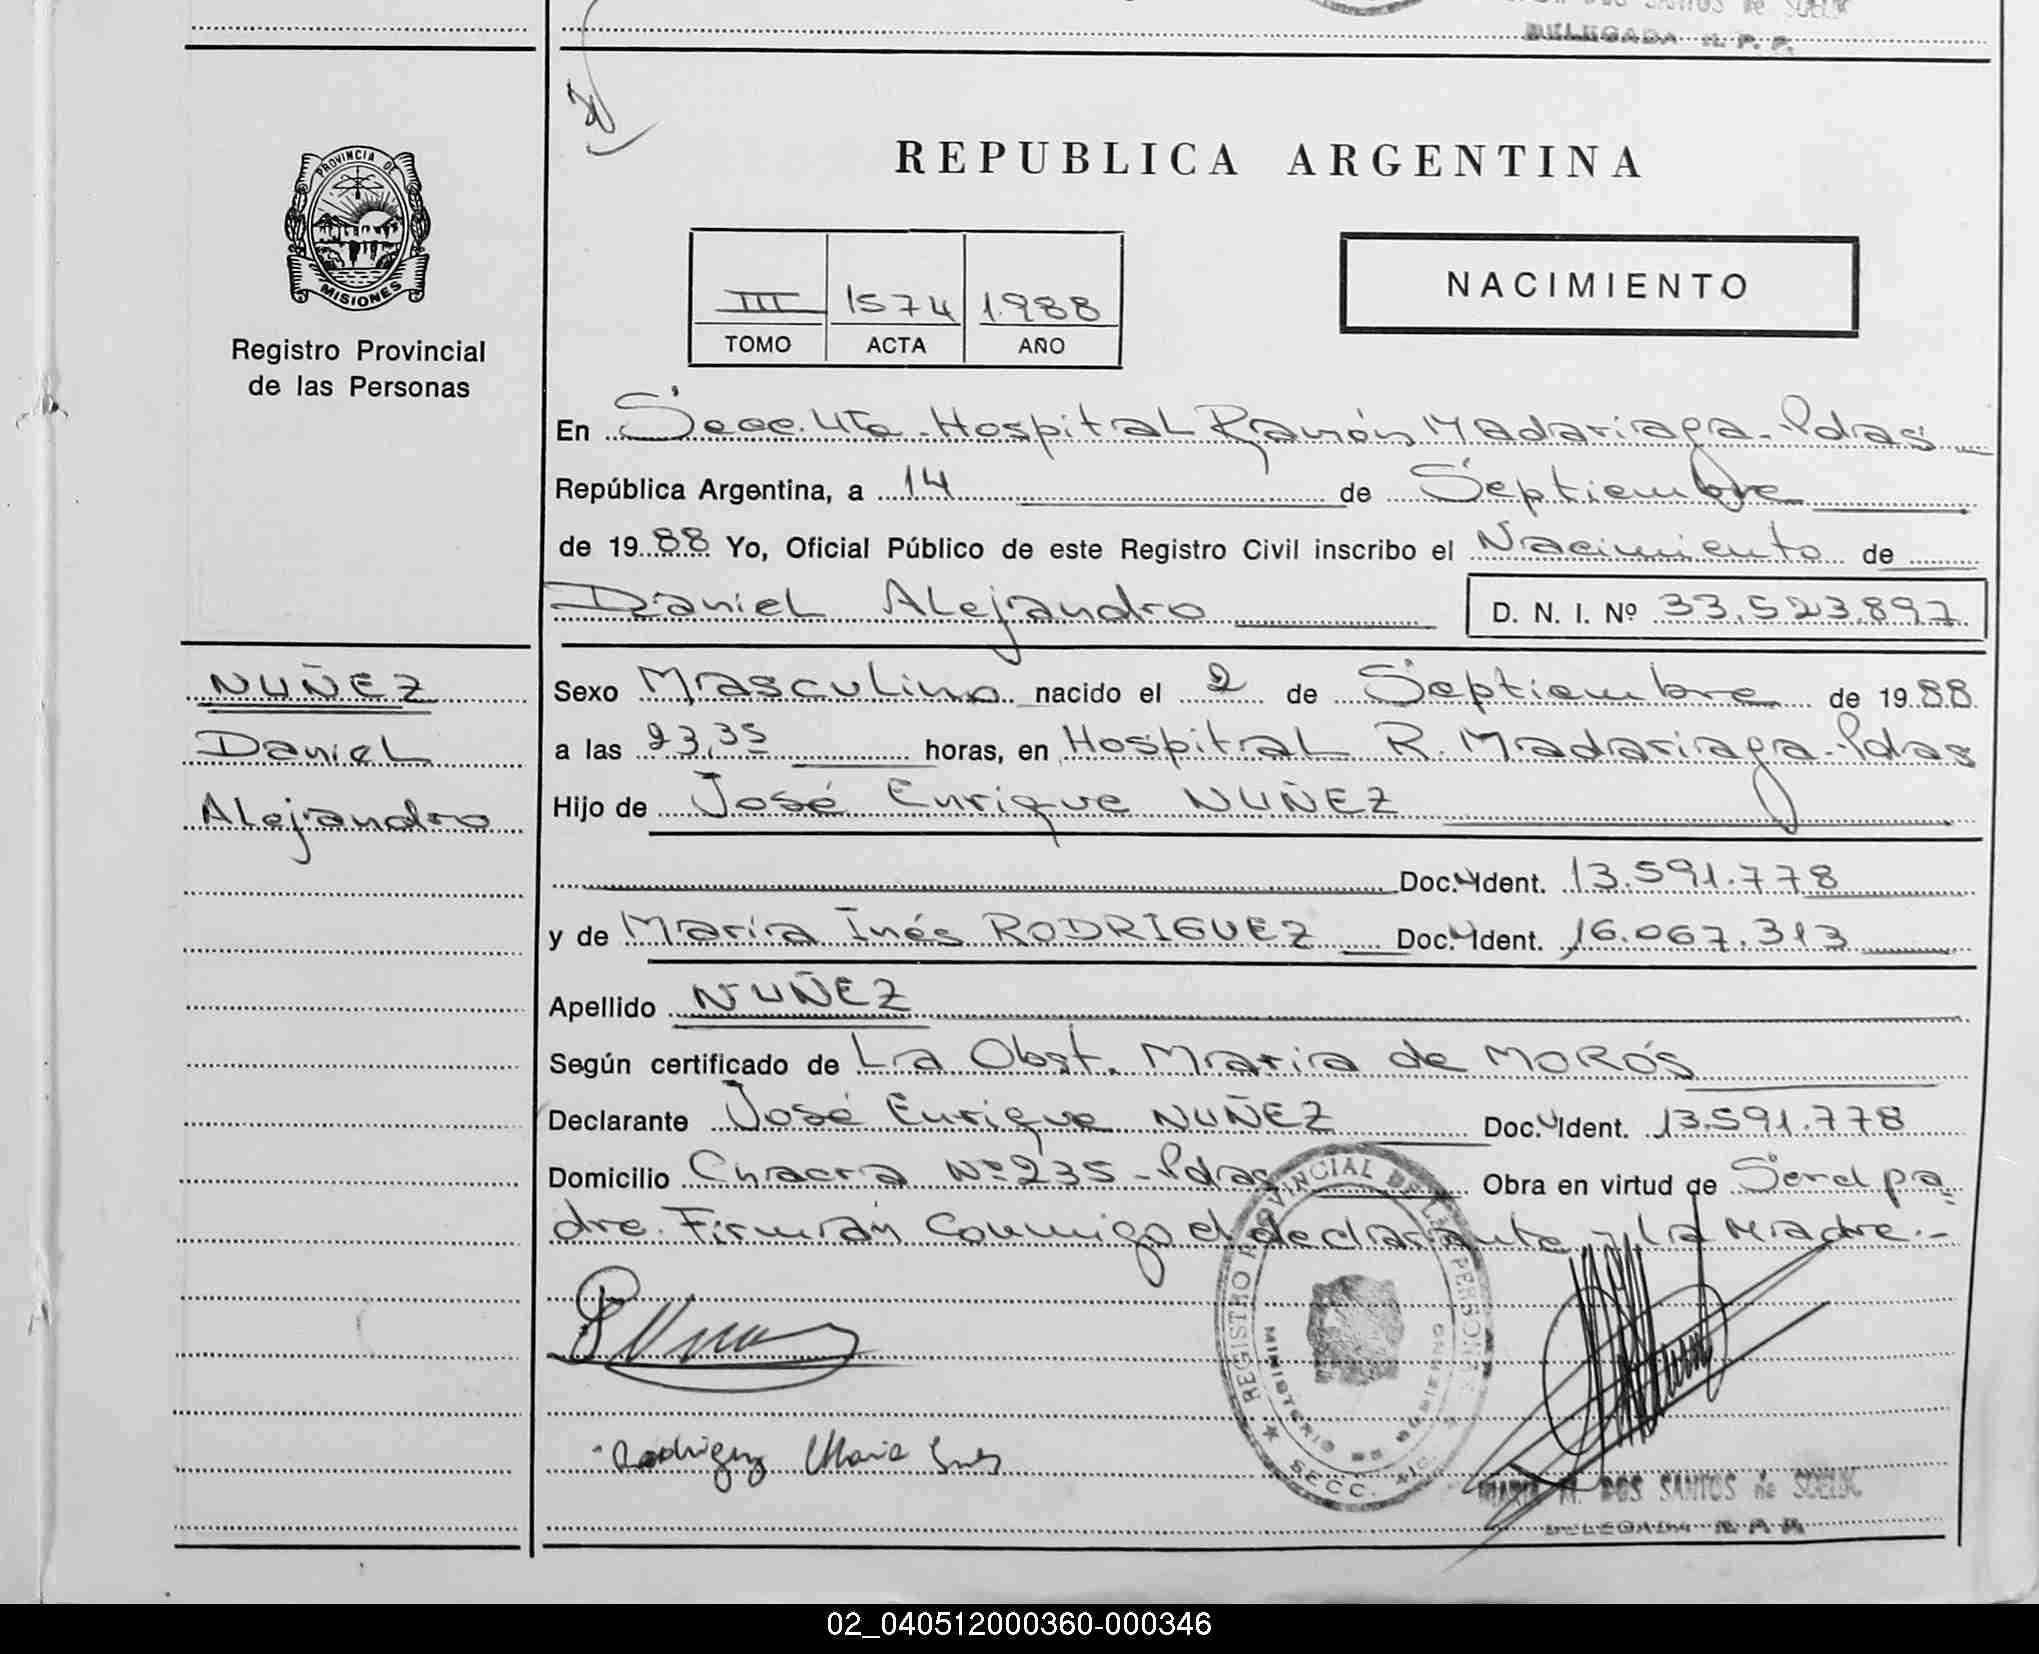 DELEGADA R. P. P.
REPUBLICA ARGENTINA
PROVINCIA DE
MISIONES
Registro Provincial
de las Personas
III 1574 1.988
TOMO ACTA AÑO
NACIMIENTO
En Secc. 4ta. Hospital Ramón Madariaga - Pdas
República Argentina, a 14 de Septiembre
de 19 88 Yo, Oficial Público de este Registro Civil inscribo el Nacimiento de
Daniel Alejandro D. N. I. Nº 33.523.897
NUÑEZ
Daniel
Alejandro
Sexo Masculino nacido el 2 de Septiembre de 19 88
a las 23,35 horas, en Hospital R. Madariaga - Pdas
Hijo de José Enrique NUÑEZ
Doc. Ident. 13.591.778
y de María Inés RODRIGUEZ Doc. Ident. 16.067.313
Apellido NUÑEZ
Según certificado de La Obst. Maria de MOROS
Declarante José Enrique NUÑEZ Doc. Ident. 13.591.778
Domicilio Chacra Nº 235 - Pdas Obra en virtud de Ser el pa
dre. Firman Conmigo el declarante y La Madre.-
REGISTRO PROVINCIAL DE LAS PERSONAS
MINISTERIO DE GOBIERNO
SECC.
Rodriguez Maria Ines
MARIA M. DOS SANTOS de
DELEGADA R. P. P.
02_040512000360-000346